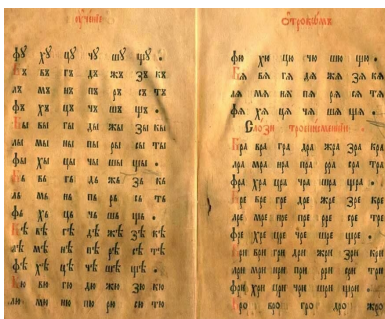 фꙋ хꙋ цꙋ чꙋ шꙋ щꙋ .
Бъ въ гъ дъ жъ зъ къ
лъ мъ нъ пъ ръ съ тъ
фъ хъ цъ чъ шъ щъ .
Бы вы гы ды жы зы кы
лы мы ны пы ры сы ты
фы хы цы чы шы щы .
Бь вь гь дь жь зь кь
ль мь нь пь рь сь ть
фь хь ць чь шь щь .
Бѣ вѣ гѣ дѣ жѣ зѣ кѣ
лѣ мѣ нѣ пѣ рѣ сѣ тѣ
фѣ хѣ цѣ чѣ шѣ щѣ .
Бю вю гю дю жю зю кю
лю мю ню пю рю сю тю
отрокѡмъ
фю хю цю чю шю щю
Бѧ вѧ гѧ дѧ жѧ зѧ кѧ
лѧ мѧ нѧ пѧ рѧ сѧ тѧ
фѧ хѧ цѧ чѧ шѧ щѧ .
Слози
Бра вра гра дра жра зра кра
лра мра нра пра рра сра тра
фра хра цра чра шра щра .
Бре вре гре дре жре зре кре
лре мре нре пре рре сре тре
фре хре цре чре шре щре .
Бри ври гри дри жри зри кри
лри мри нри при рри сри три
фри хри цри чри шри щри .
Бро вро гро дро жро